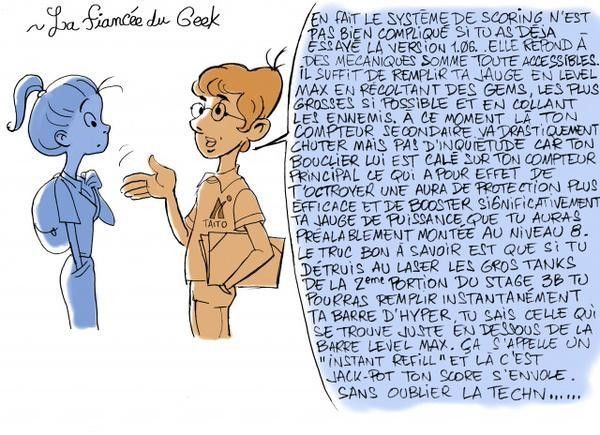 ~ La fiancée du Geek
EN FAIT LE SYSTÈME DE SCORING N'EST
PAS BIEN COMPLIQUÉ SI TU AS DÉJA
ESSAYÉ LA VERSION 1.06. ELLE RÉPOND À
DES MÉCANIQUES SOMME TOUTE ACCESSIBLES.
IL SUFFIT DE REMPLIR TA JAUGE EN LEVEL
MAX EN RÉCOLTANT DES GEMS, LES PLUS
GROSSES SI POSSIBLE ET EN COLLANT
LES ENNEMIS. À CE MOMENT LÀ TON
COMPTEUR SECONDAIRE VA DRASTIQUEMENT
CHUTER MAIS PAS D'INQUIÉTUDE CAR TON
BOUCLIER LUI EST CALÉ SUR TON COMPTEUR
PRINCIPAL CE QUI A POUR EFFET DE
T'OCTROYER UNE AURA DE PROTECTION PLUS
EFFICACE ET DE BOOSTER SIGNIFICATIVEMENT
TA JAUGE DE PUISSANCE QUE TU AURAS
PRÉALABLEMENT MONTÉE AU NIVEAU 8.
LE TRUC BON À SAVOIR EST QUE SI TU
DÉTRUIS AU LASER LES GROS TANKS
DE LA 2ème PORTION DU STAGE 3B TU
POURRAS REMPLIR INSTANTANÉMENT
TA BARRE D'HYPER, TU SAIS CELLE QUI
SE TROUVE JUSTE EN DESSOUS DE LA
BARRE LEVEL MAX. ÇA S'APPELLE UN
"INSTANT REFILL" ET LÀ C'EST
JACK-POT TON SCORE S'ENVOLE.
SANS OUBLIER LA TECHN......
TAITO